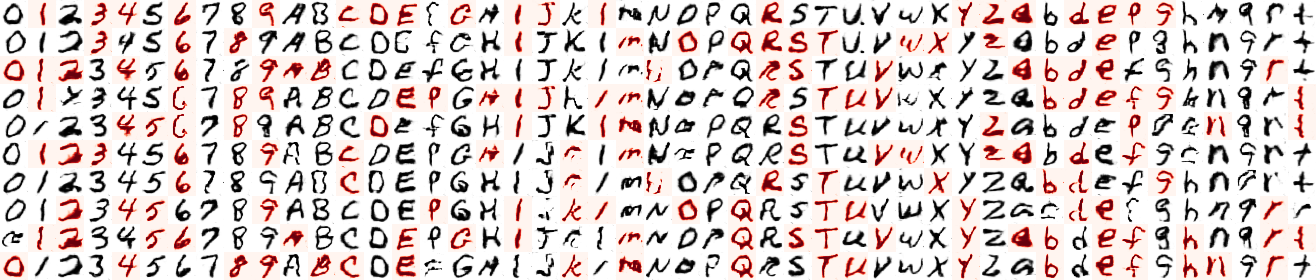 0 1 2 3 4 5 6 7 8 9 A B C D E f G H I J k I m N O P Q R S T U V w X Y Z a b d e p g h n q r t
0 1 2 3 4 5 6 7 8 9 A B C D E f G H I J K I m N O P Q R S T U V w X Y Z a b d e p g h n q r t
0 1 2 3 4 5 6 7 8 9 A B C D E f G H I J k I m N O P Q R S T U V w X Y Z a b d e f g h n q r t
0 1 2 3 4 5 6 7 8 9 A B C D E P G H I J k I m N O P Q R S T U V w X Y Z a b d e f g h n q r t
0 1 2 3 4 5 6 7 8 9 A B C D E f G H I J K I m N P Q R S T U V w X Y Z a b d e f g n q r t
0 1 2 3 4 5 6 7 8 9 A B C D E P G H I J I m N P Q R S T U V w X Y Z a b d e f g n q r t
0 1 2 3 4 5 6 7 8 9 A B C D E P G H I J I m N O P Q R S T U V w X Y Z a b d e f g h n q r t
0 1 2 3 4 5 6 7 8 9 A B C D E P G H I J k I m N O P Q R S T U V w X Y Z a d e g h n q r t
1 2 3 4 5 6 7 8 9 A B C D E f G H I J I m N O P Q R S T U V w X Y Z a b d e f g h n q r t
0 1 2 3 4 5 6 7 8 9 A B C D E G H I J k I m N O P Q R S T U V w X Y Z a b d e f g h n q r t